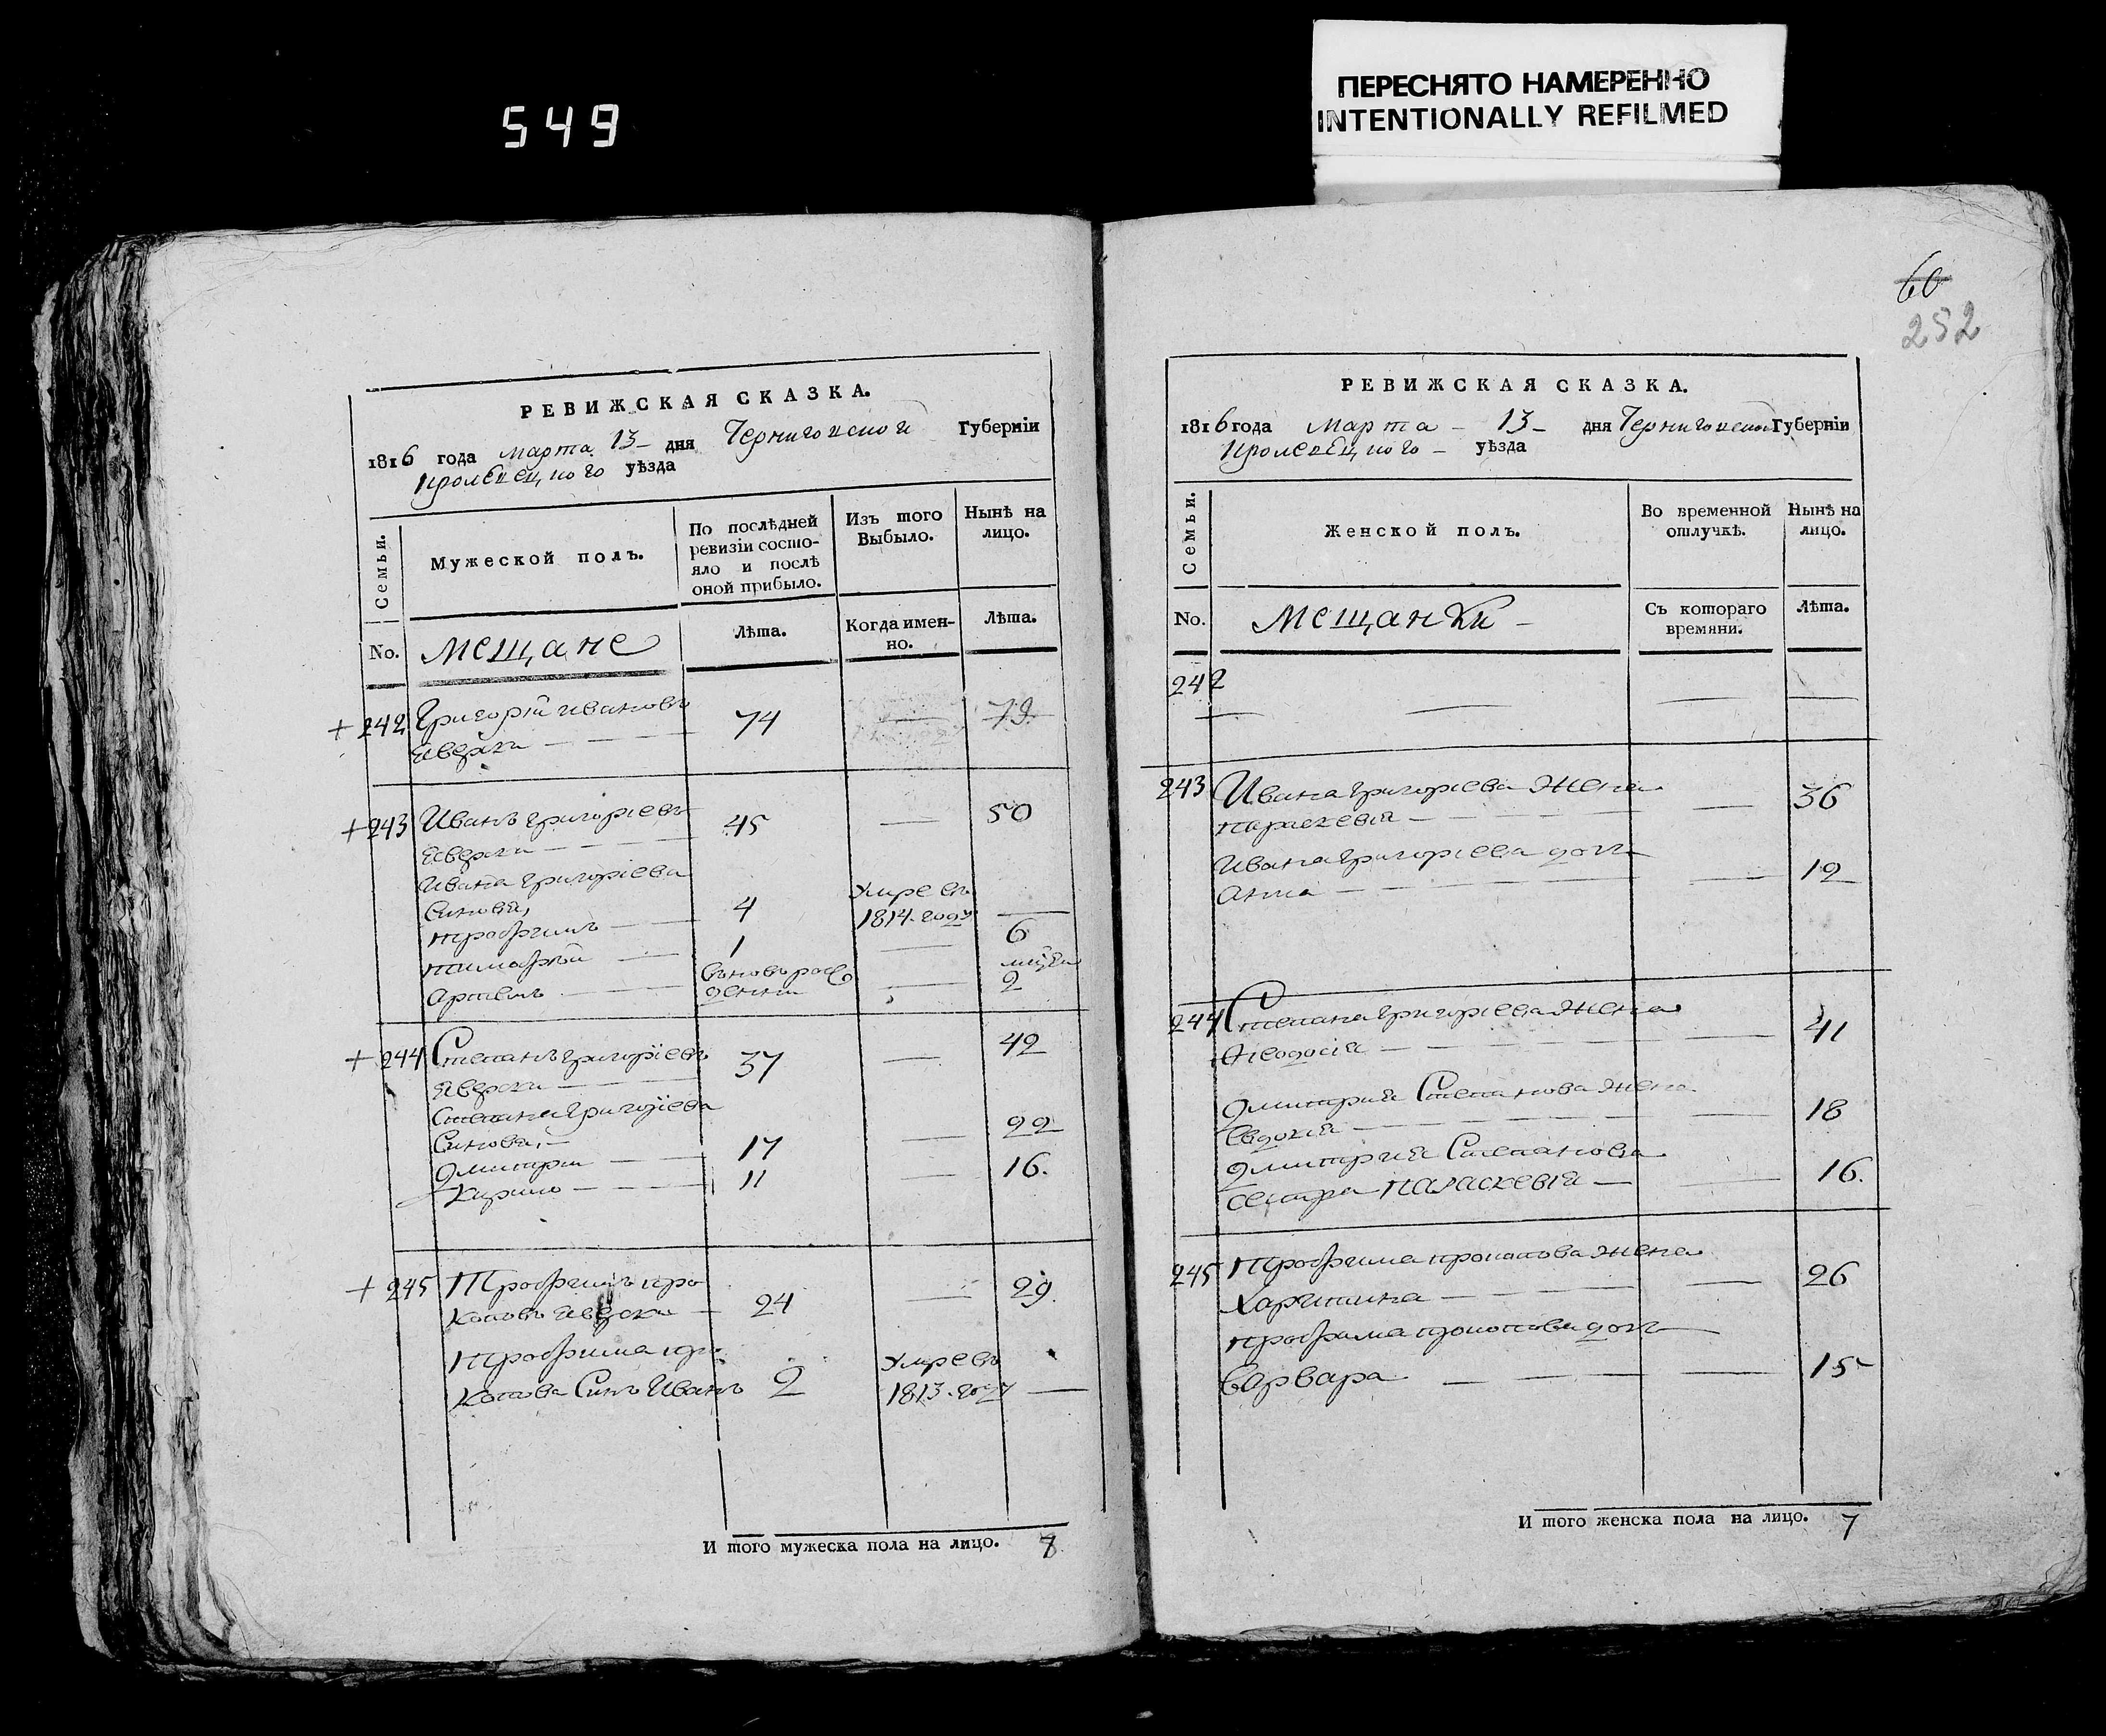 549
ПЕРЕСНЯТО НАМЕРЕННО
INTENTIONALLY REFILMED
60
252
РЕВИЖСКАЯ СКАЗКА.
1816 года марта 13 – дня Черниговской Губерніи
Кролевецкого уѣзда
Семьи.
Мужеской полъ.
По послѣдней ревизіи состояло и послѣ оной прибыло.
Изъ того Выбыло.
Нынѣ на лицо.
No. мещане
Лѣта.
Когда именно.
Лѣта.
+ 242 Григорій Ивановъ
— — 74 — 79.
+ 243 Иванъ Григоріевъ
— — 45 — 50
Ивана Григоріева
Синовя,
Трофимъ — 4 Умре въ 1814. году —
Тимофѣй — 1 — 6
Артемъ — вновь рожденни — 2
+ 244 Степанъ Григоріевъ
— — 37 — 42
Степана Григоріева
Синовя, –
Дмитри — 17 — 22
Кирило — 11 — 16.
+ 245 Трофимъ Про
коповъ — 24 — 29.
Трофима Про
копова Синъ Иванъ 2 Умре въ 1813. году —
И того мужеска пола на лицо. 8
РЕВИЖСКАЯ СКАЗКА.
1816 года Марта – 13 – дня Черниговской Губерніи
Кролевецкого – уѣзда
Семьи.
Женской полъ.
Во временной отлучкѣ.
Нынѣ на лицо.
No. Мещанки –
Съ котораго времяни.
Лѣта.
242
— — — —
243 Ивана Григоріева Жена
Параскевія — — 36
Ивана Григоріева дочь
Анна — — 12
244 Степана Григоріева Жена
Ѳеодосія — — 41
Дмитрия Степанова Жена
Евдокія — — 18
Дмитрия Степанова
сестра Параскевія — — 16.
245 Трофима Прокопова Жена
Харитина — — 26
Трофима Прокопова дочь
Варвара — — 15
И того женска пола на лицо. 7